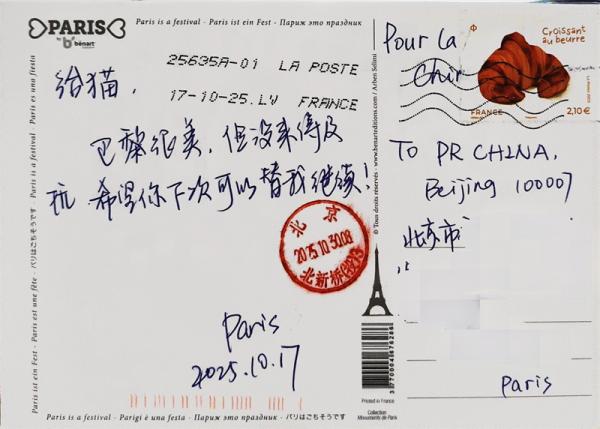 PARIS
by benart
Paris is a festival - Paris ist ein Fest - Париж это праздник
25635A-01 LA POSTE
17-10-25.LV FRANCE
给猫,
巴黎很美,但没来得及
玩 希望你下次可以替我继续!
北京
2025.10.30.08
北新桥
Paris
2025.10.17
Paris is a festival - Parigi è una festa - Париж это праздник - パリはごちそうです
Paris ist ein Fest - Paris is a festival - パリはごちそうです
Paris est une fête
Paris es una fiesta
© Tous droits réservés - www.benarteditions.com
3770004878286
Printed in France
Collection
Monuments de Paris
Pour la
Chin
Croissant
au beurre
FRANCE
2,10 €
TO PR CHINA,
Beijing 100007
北京市
Paris